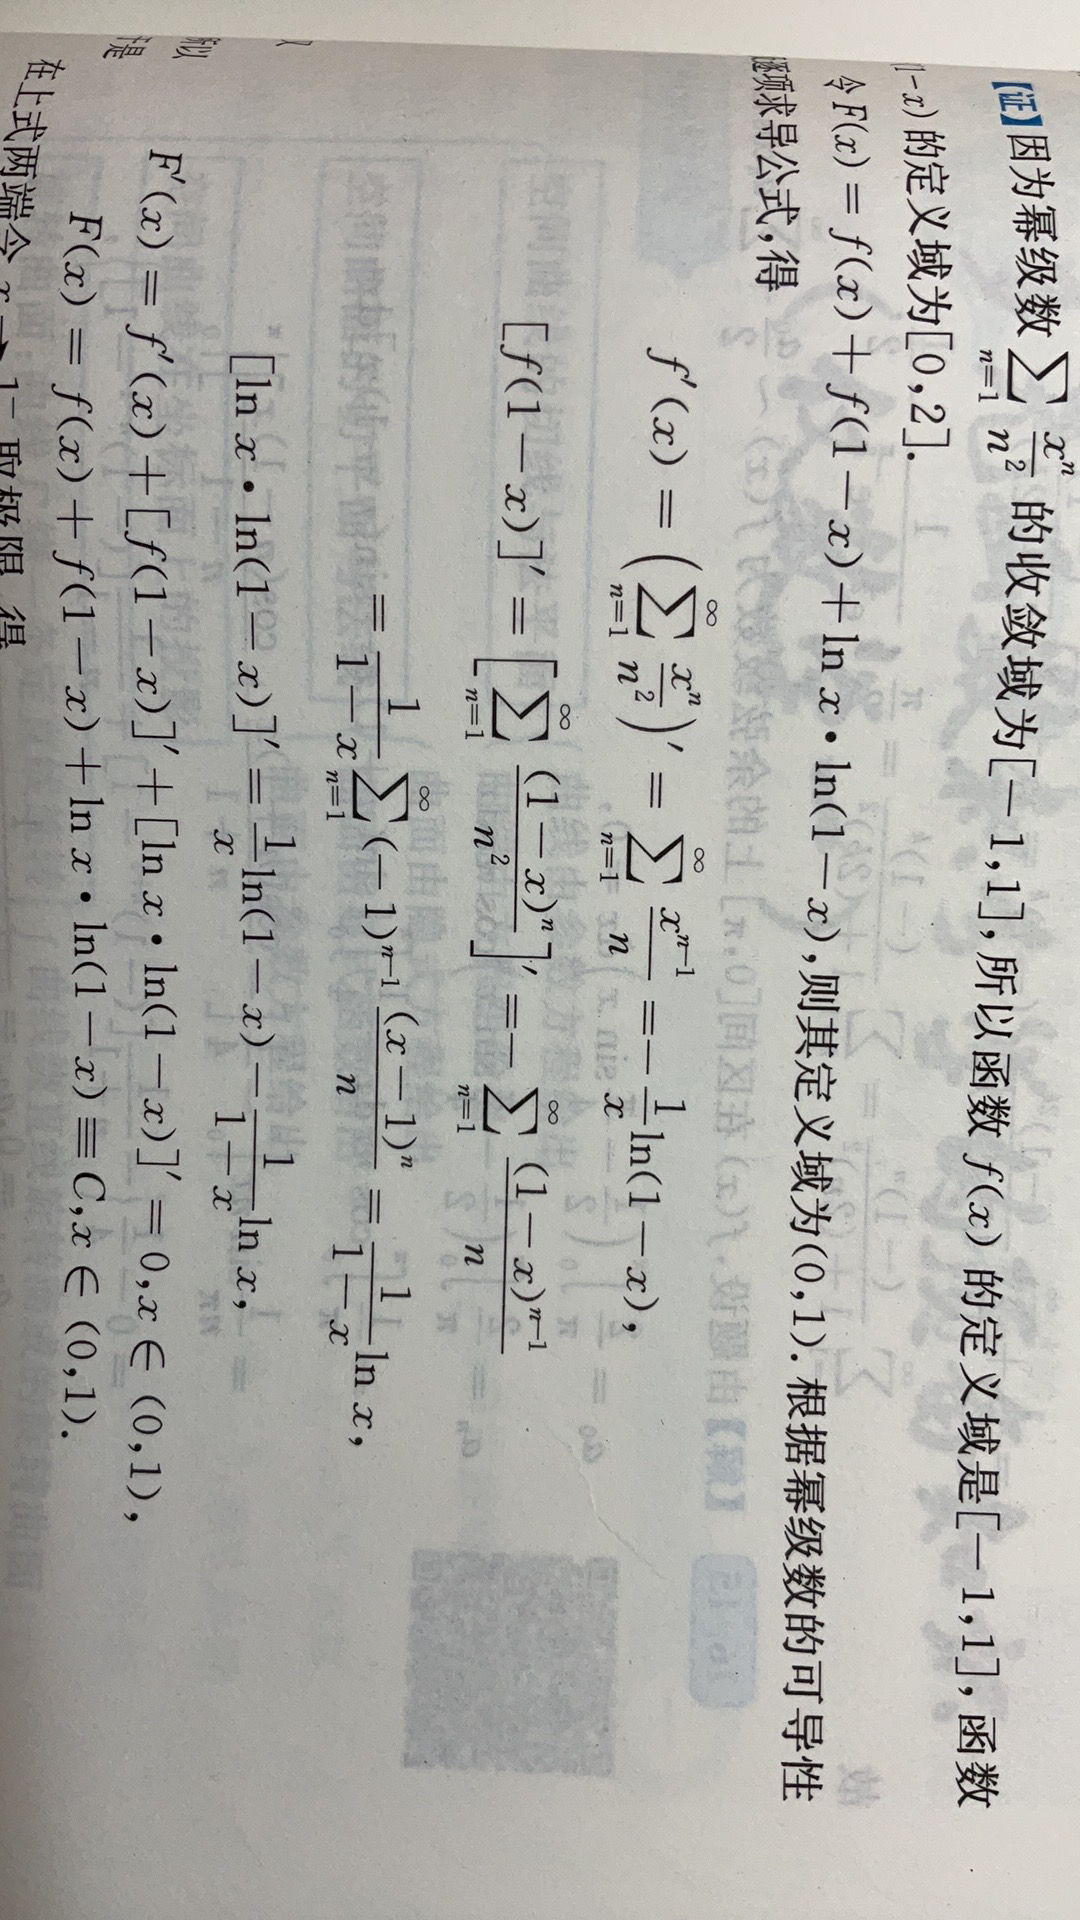 【证】因为幂级数 $\sum_{n=1} \frac{x^n}{n^2}$ 的收敛域为[-1,1],所以函数 f(x) 的定义域是[-1,1],函数
(1-x) 的定义域为[0,2].
令F(x)=f(x)+f(1-x)+ln x·ln(1-x),则其定义域为(0,1).根据幂级数的可导性
逐项求导公式,得
$f'(x) = \left(\sum_{n=1}^{\infty} \frac{x^n}{n^2}\right)' = \sum_{n=1}^{\infty} \frac{x^{n-1}}{n} = -\frac{1}{x}\ln(1-x),$
$[f(1-x)]' = \left[\sum_{n=1}^{\infty} \frac{(1-x)^n}{n^2}\right]' = -\sum_{n=1}^{\infty} \frac{(1-x)^{n-1}}{n}$
$= \frac{1}{1-x}\sum_{n=1}^{\infty} (-1)^{n-1}\frac{(x-1)^n}{n} = \frac{1}{1-x}\ln x,$
$[\ln x·\ln(1-x)]' = \frac{1}{x}\ln(1-x) - \frac{1}{1-x}\ln x,$
F'(x) = f'(x)+[f(1-x)]'+[ln x·ln(1-x)]' = 0,x∈(0,1),
F(x) = f(x)+f(1-x)+ln x·ln(1-x)≡C,x∈(0,1).
在上式两端令 x→1⁻ 取极限 得